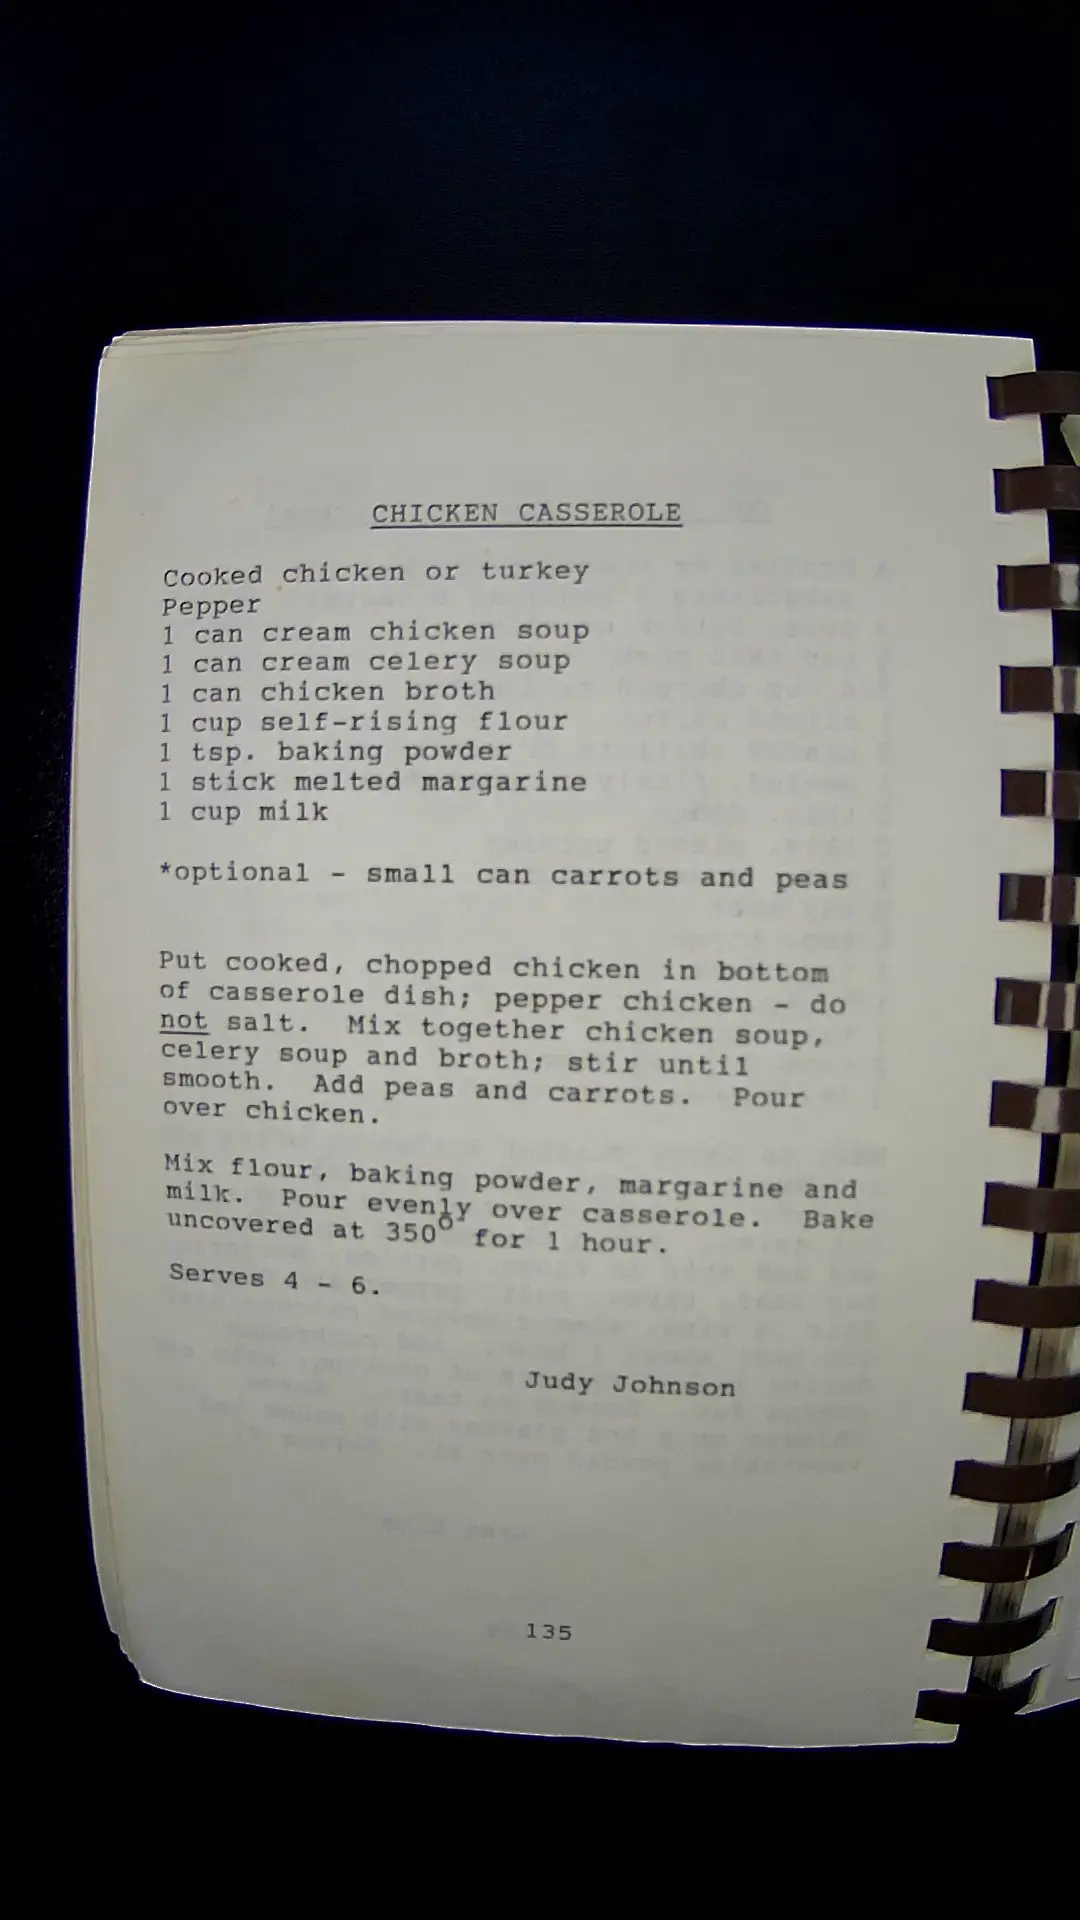 CHICKEN CASSEROLE
Cooked chicken or turkey
Pepper
1 can cream chicken soup
1 can cream celery soup
1 can chicken broth
1 cup self-rising flour
1 tsp. baking powder
1 stick melted margarine
1 cup milk
*optional - small can carrots and peas
Put cooked, chopped chicken in bottom
of casserole dish; pepper chicken - do
not salt. Mix together chicken soup,
celery soup and broth; stir until
smooth. Add peas and carrots. Pour
over chicken.
Mix flour, baking powder, margarine and
milk. Pour evenly over casserole. Bake
uncovered at 350° for 1 hour.
Serves 4 - 6.
Judy Johnson
135